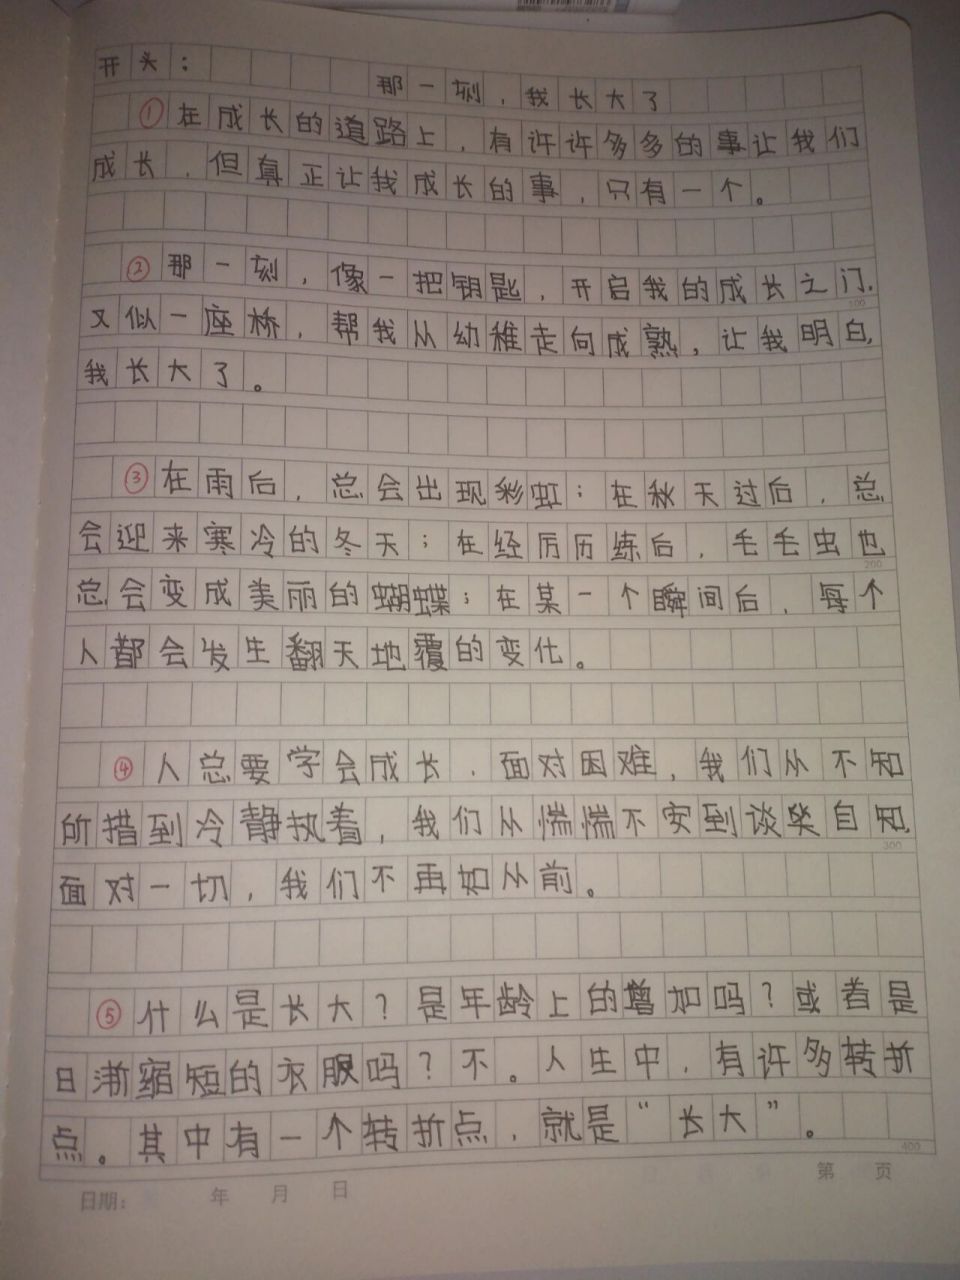 开头；
那一刻，我长大了
①在成长的道路上，有许许多多的事让我们
成长，但真正让我成长的事，只有一个。
②那一刻，像一把钥匙，开启我的成长之门，
100
又似一座桥，帮我从幼稚走向成熟，让我明白，
我长大了。
③在雨后，总会出现彩虹；在秋天过后，总
会迎来寒冷的冬天；在经厉历练后，毛毛虫也
200
总会变成美丽的蝴蝶；在某一个瞬间后，每个
人都会发生翻天地覆的变化。
④人总要学会成长，面对困难，我们从不知
所措到冷静执着，我们从惴惴不安到谈笑自知，
300
面对一切，我们不再如从前。
⑤什么是长大？是年龄上的增加吗？或者是
日渐缩短的衣服吗？不。人生中，有许多转折
点。其中有一个转折点，就是“长大”。
400
日期： 年 月 日 第 页